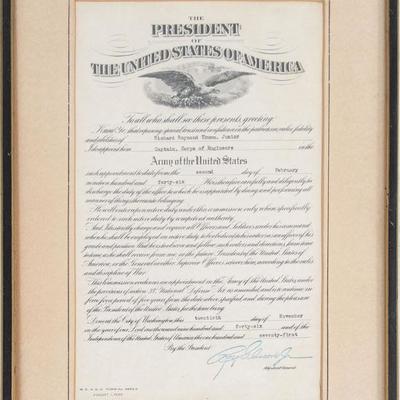 THE
PRESIDENT
OF
THE UNITED STATES OF AMERICA
To all who shall see these presents, greeting:
Know Ye, that reposing special trust and confidence in the patriotism, valor, fidelity
and abilities of Richard Raymond Tomm, Junior
I do appoint him Captain, Corps of Engineers in the
Army of the United States
such appointment to date from the second day of February
nineteen hundred and forty-six. He is therefore carefully and diligently to
discharge the duty of the office to which he is appointed by doing and performing all
manner of things thereunto belonging.
He will enter upon active duty under this commission only when specifically
ordered to such active duty by competent authority.
And I do strictly charge and require all Officers and Soldiers under his command
when he shall be employed on active duty to be obedient to his orders as an officer of his
grade and position. And he is to observe and follow such orders and directions, from time
to time, as he shall receive from me, or the future President of the United States of
America, or the General or other Superior Officers set over him, according to the rules
and discipline of War.
This Commission evidences an appointment in the Army of the United States, under
the provisions of section 37, National Defense Act, as amended, and is to continue in
force for a period of five years from the date above specified, and during the pleasure
of the President of the United States, for the time being.
Done at the City of Washington, this twentieth day of November
in the year of our Lord one thousand nine hundred and forty-six and of the
Independence of the United States of America the one hundred and seventy-first.
By the President:
Adjutant General.
W. D., A. G. O. FORM No.
AUGUST 1,